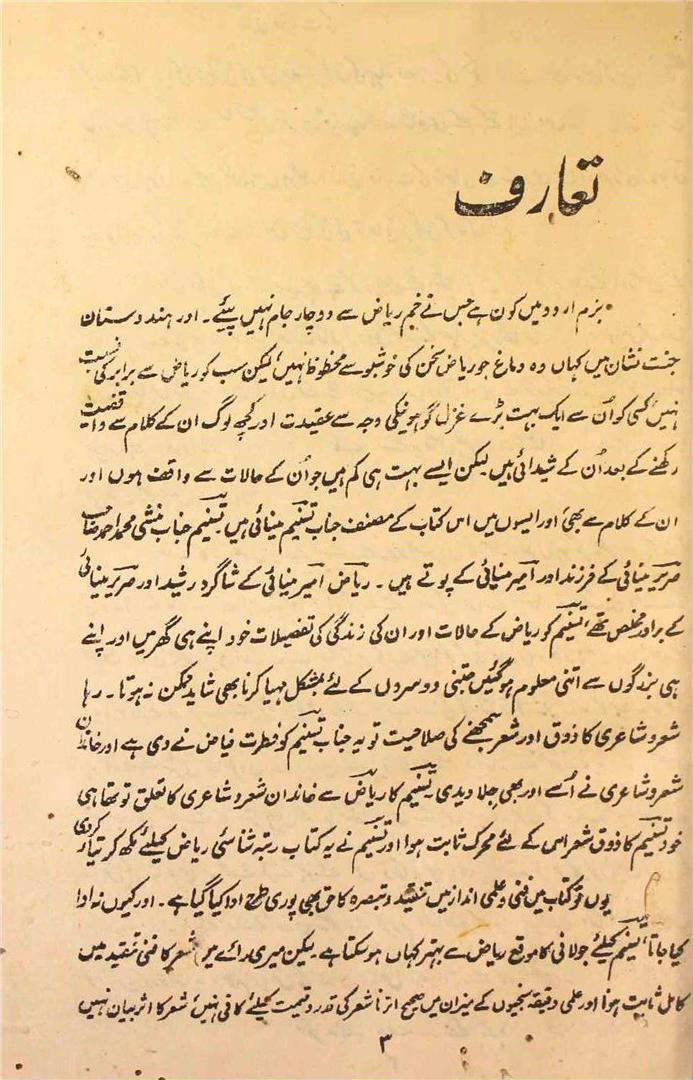 تعارف
بزم اردو میں کون ہے جس نے خم ریاض سے دو چار جام نہیں پیئے۔ اور ہندوستان
جنت نشان میں کہاں وہ دماغ جو ریاض سخن کی خوشبو سے محظوظ نہیں، لیکن سب کو ریاض سے برابر کی نسبت
نہیں، کسی کو اُن سے ایک بہت بڑے غزل گو ہونیکی وجہ سے عقیدت اور کچھ لوگ ان کے کلام سے واقفیت
رکھنے کے بعد اُن کے شیدائی ہیں لیکن ایسے بہت ہی کم ہیں جو اُن کے حالات سے واقف ہوں اور
ان کے کلام سے بھی، اور ایسوں میں اس کتاب کے مصنف جناب تسنیم مینائی ہیں۔ تسنیم جناب منشی محمد احمد صاحب
صریر مینائی کے فرزند اور امیر مینائی کے پوتے ہیں۔ ریاض امیر مینائی کے شاگرد رشید اور صریر مینائی
کے برادر مخلص تھے، تسنیم کو ریاض کے حالات اور ان کی زندگی کی تفصیلات خود اپنے ہی گھر میں اور اپنے
ہی بزرگوں سے اتنی معلوم ہوگئیں جتنی دوسروں کے لئے بمشکل مہیا کرنا بھی شاید ممکن نہ ہوتا۔ رہا
شعر و شاعری کا ذوق اور شعر سمجھنے کی صلاحیت تو یہ جناب تسنیم کو فطرت فیاض نے دی ہے اور خاندان
شعر و شاعری نے اُسے اور بھی جلا دیدی۔ تسنیم کا ریاض سے خاندان شعر و شاعری کا تعلق تو تھا ہی
خود تسنیم کا ذوق شعر اس کے لئے محرک ثابت ہوا اور تسنیم نے یہ کتاب رتبہ شناسئی ریاض کیلئے لکھ کر تیار کردی
یوں تو کتاب میں فنی و علمی انداز میں تنقید و تبصرہ کا حق بھی پوری طرح ادا کیا گیا ہے۔ اور کیوں نہ ادا
کیا جاتا، تسنیم کیلئے جولانی کا موقع ریاض سے بہتر کہاں ہوسکتا ہے۔ لیکن میری رائے میں شعر کا فنی تنقید میں
کامل ثابت ہونا اور علمی دقیقہ سنجیوں کے میزان میں صحیح اترنا شعر کی قدر و قیمت کیلئے کافی نہیں، شعر کا اثر بیان نہیں
۳